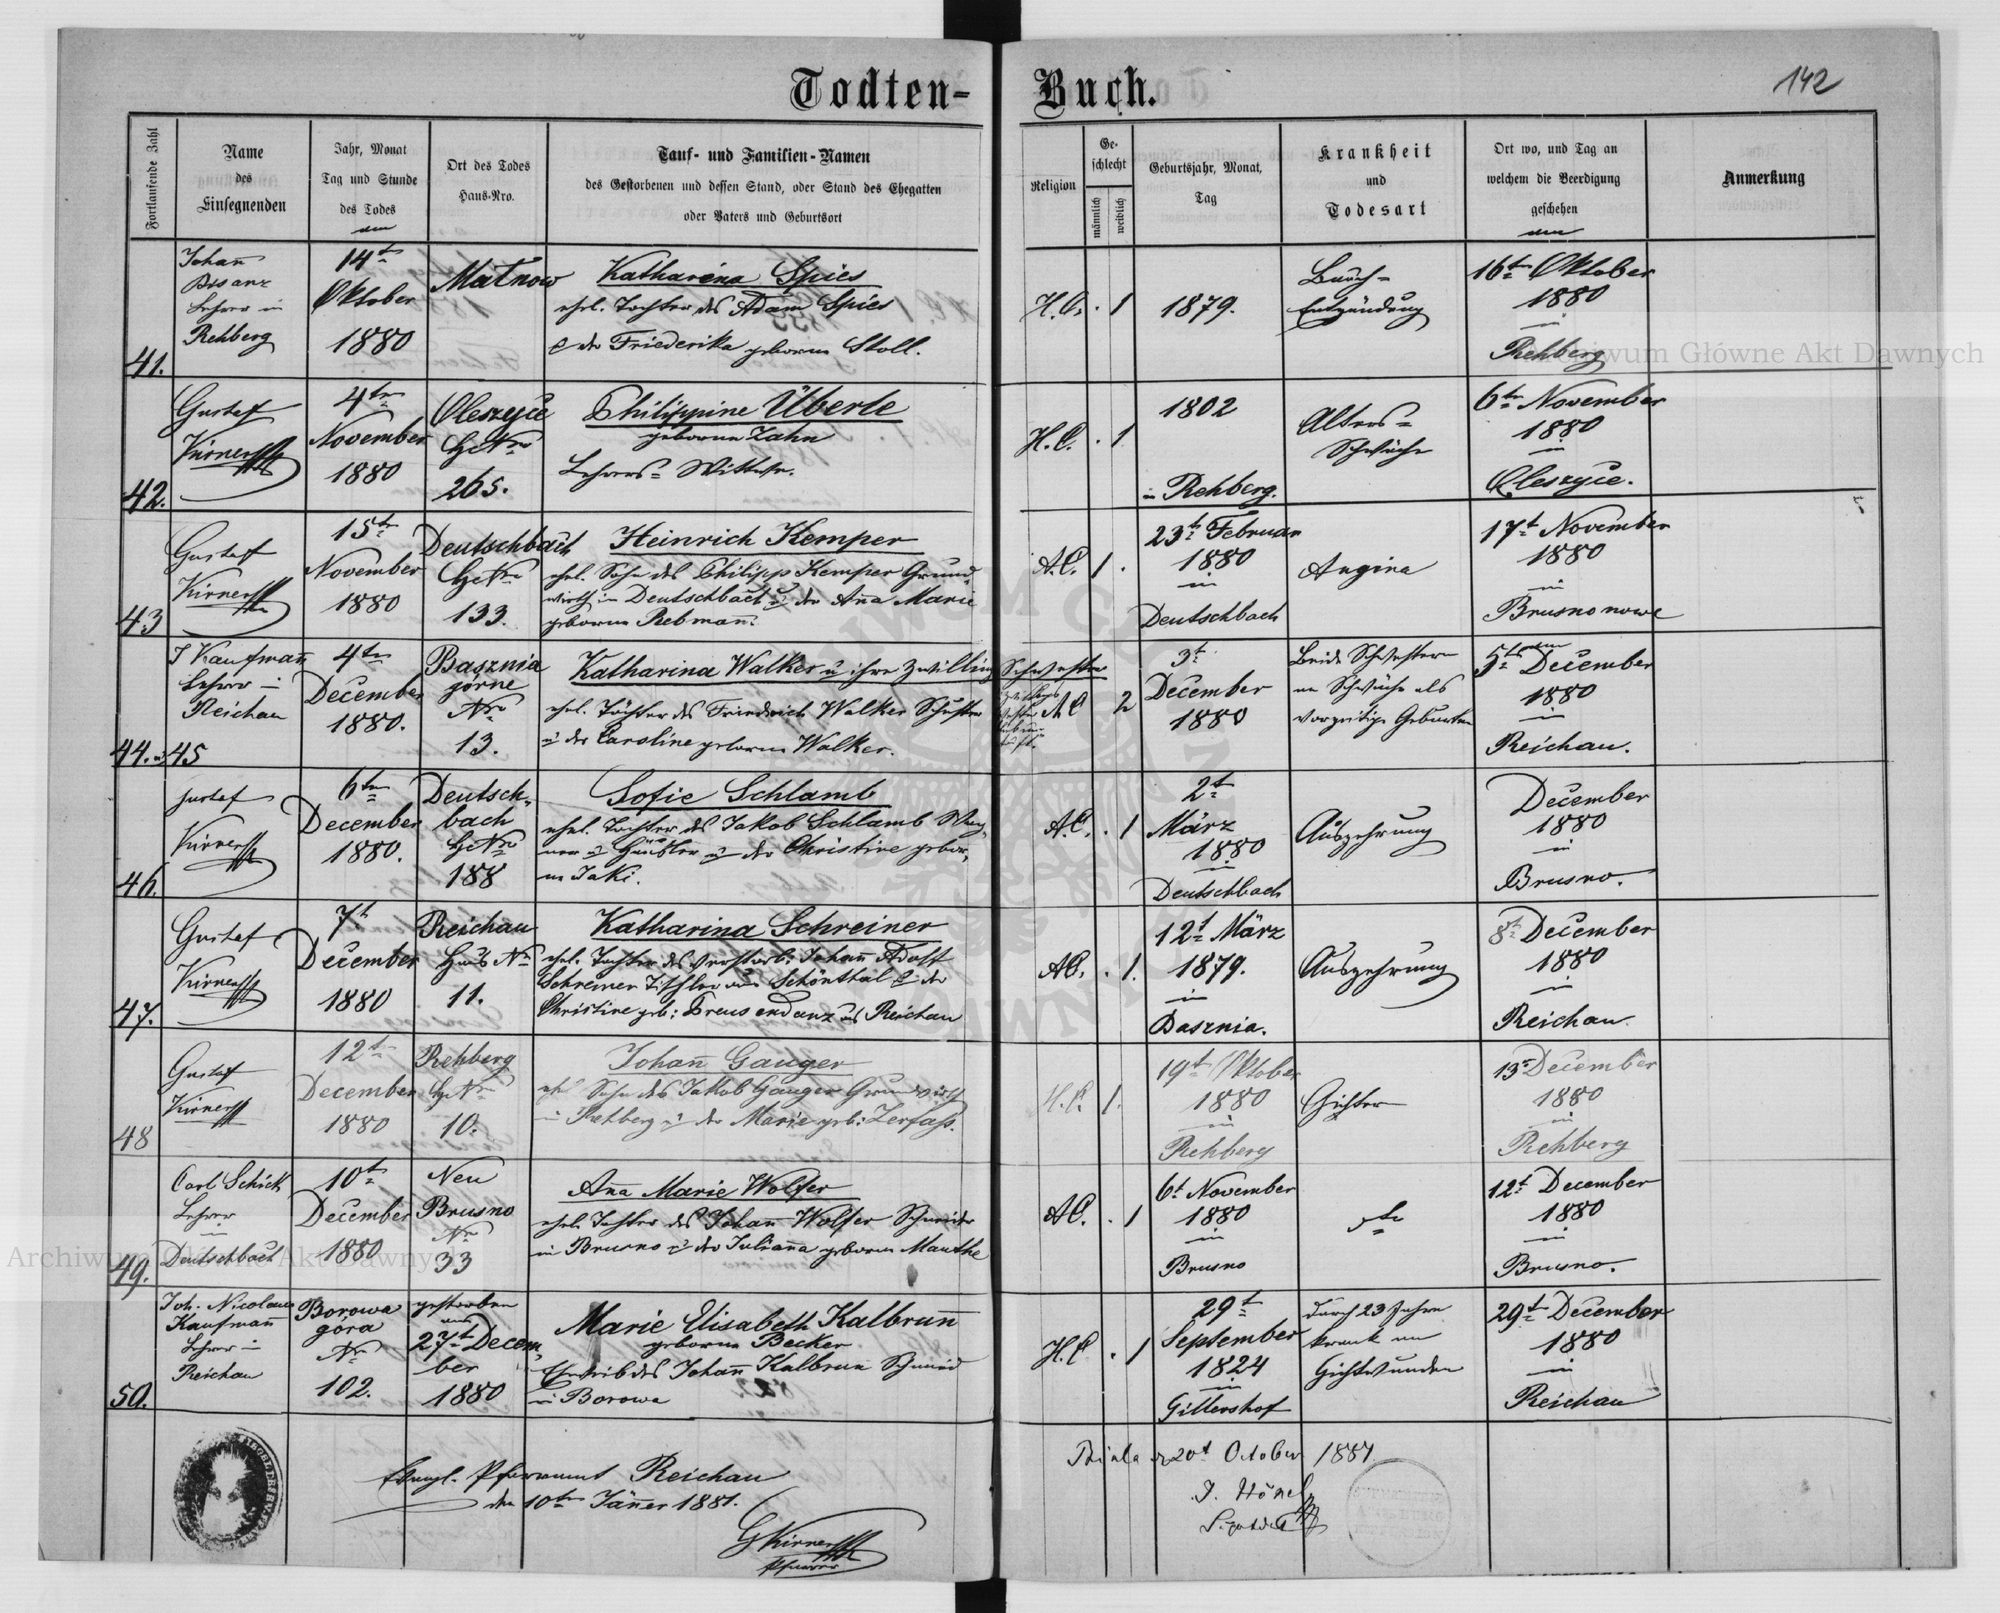 Todten-Buch.
142
Fortlaufende Zahl
Name
des
Einsegnenden
Jahr, Monat
Tag und Stunde
des Todes
den
Ort des Todes
Haus-Nro.
Tauf- und Familien-Namen
des Gestorbenen und dessen Stand, oder Stand des Ehegatten
oder Vaters und Geburtsort
Religion
Ge-
schlecht
männlich
weiblich
Geburtsjahr, Monat,
Tag
Krankheit
und
Todesart
Ort wo, und Tag an
welchem die Beerdigung
geschehen
den
Anmerkung
41.
Johann
Bisanz
Lehrer in
Rehberg
14ten
Oktober
1880
Matnow
Katharina Spies
ehel. Tochter des Adam Spies
& der Friederika geborne Stoll.
H.C. . 1
1879.
Bauch=
Entzündung
16ten Oktober
1880
in
Rehberg
42.
Gustaf
Kirner
4ten
November
1880
Oleszyce
HsNro
265.
Philippine Überle
geborne Zahn
Lehrers= Wittwe.
H.C. . 1.
1802
in Rehberg.
Alters=
Schwäche
6ten November
1880
in
Oleszyce.
43
Gustaf
Kirner
15ten
November
1880
Deutschbach
HsNro
133.
Heinrich Kemper
ehel. Sohn des Philipp Kemper Grund-
wirth in Deutschbach u der Anna Marie
geborne Rebmann.
A.C. 1 .
23t Februar
1880
in
Deutschbach
Angina
17t November
1880
in
Brusno nowe
44. u 45
J Kaufmann
Lehrer in
Reichau
4ten
December
1880.
Basznia
górne
Nro
13.
Katharina Walker u ihre Zwillings Schwester
ehel. Töchter des Friedrich Walker Schuster
u der Caroline geborne Walker.
A.C 2
3t
December
1880
Beide Schwestern
an Schwäche als
vorzeitige Geburten
5ten December
1880
in
Reichau.
46.
Gustaf
Kirner
6ten
December
1880.
Deutsch-
bach
HsNro
188
Sofie Schlamb
ehel. Tochter des Jakob Schlamb Wag-
ner u Häusler u der Christine gebor-
ne Jaki.
A.C. . 1
2t
März
1880
in
Deutschbach
Auszehrung
December
1880
in
Brusno.
47.
Gustaf
Kirner
7t
December
1880
Reichau
Haus Nro
11.
Katharina Schreiner
ehel. Tochter des verstorb: Johann Adolf
Schreiner Tischler aus Schönthal & der
Christine geb: Freusendanz aus Reichau
AC. . 1.
12t März
1879.
in
Basznia.
Auszehrung
8t December
1880
in
Reichau.
48
Gustaf
Kirner
12ten
December
1880
Rehberg
HsNro
10.
Johann Gauger
ehel Sohn des Jakob Gauger Grundwirth
in Rehberg u der Marie geb: Zerfass.
H.C. 1.
19t Oktober
1880
in
Rehberg
Gichter
13t December
1880
in
Rehberg
49.
Carl Schick
Lehrer
in
Deutschbach
10t
December
1880
Neu
Brusno
Nro
33
Anna Marie Wolfer
ehel. Tochter des Johann Wolfer Schneider
in Brusno u der Julianna geborne Mauthe
A.C. . 1
6t November
1880
in
Brusno
dto
12t December
1880
in
Brusno.
50.
Joh. Nicolaus
Kaufmann
Lehrer in
Reichau
Borowa
góra
Nro
102.
gestorben
am
27t Decem-
ber
1880
Marie Elisabeth Kalbrunn
geborne Becker
Eheweib des Johann Kalbrun Schmied
in Borowa
H.C . 1
29t
September
1824
in
Gillershof
durch 23 Jahre
krank an
Gichtwunden
29t December
1880
in
Reichau
Evangl. Pfarramt Reichau
den 10ten Jänner 1881.
GKirner
Pfarrer
Biala d 20t October 1881.
J. Hönel
Archiwum Główne Akt Dawnych
Archiwum Główne Akt Dawnych